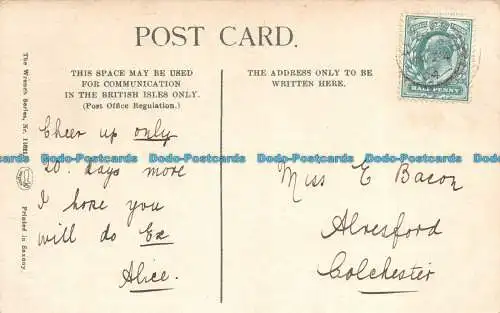 POST CARD.
THIS SPACE MAY BE USED
FOR COMMUNICATION
IN THE BRITISH ISLES ONLY.
(Post Office Regulation.)
THE ADDRESS ONLY TO BE
WRITTEN HERE.
HALF PENNY
The Wrench Series, No.
Printed in Saxony
Cheer up only
20 days more
I hope you
will do Ex
Alice.
Miss E Bacon
Alresford
Colchester
Dodo-Postcards Dodo-Postcards Dodo-Postcards Dodo-Postcards